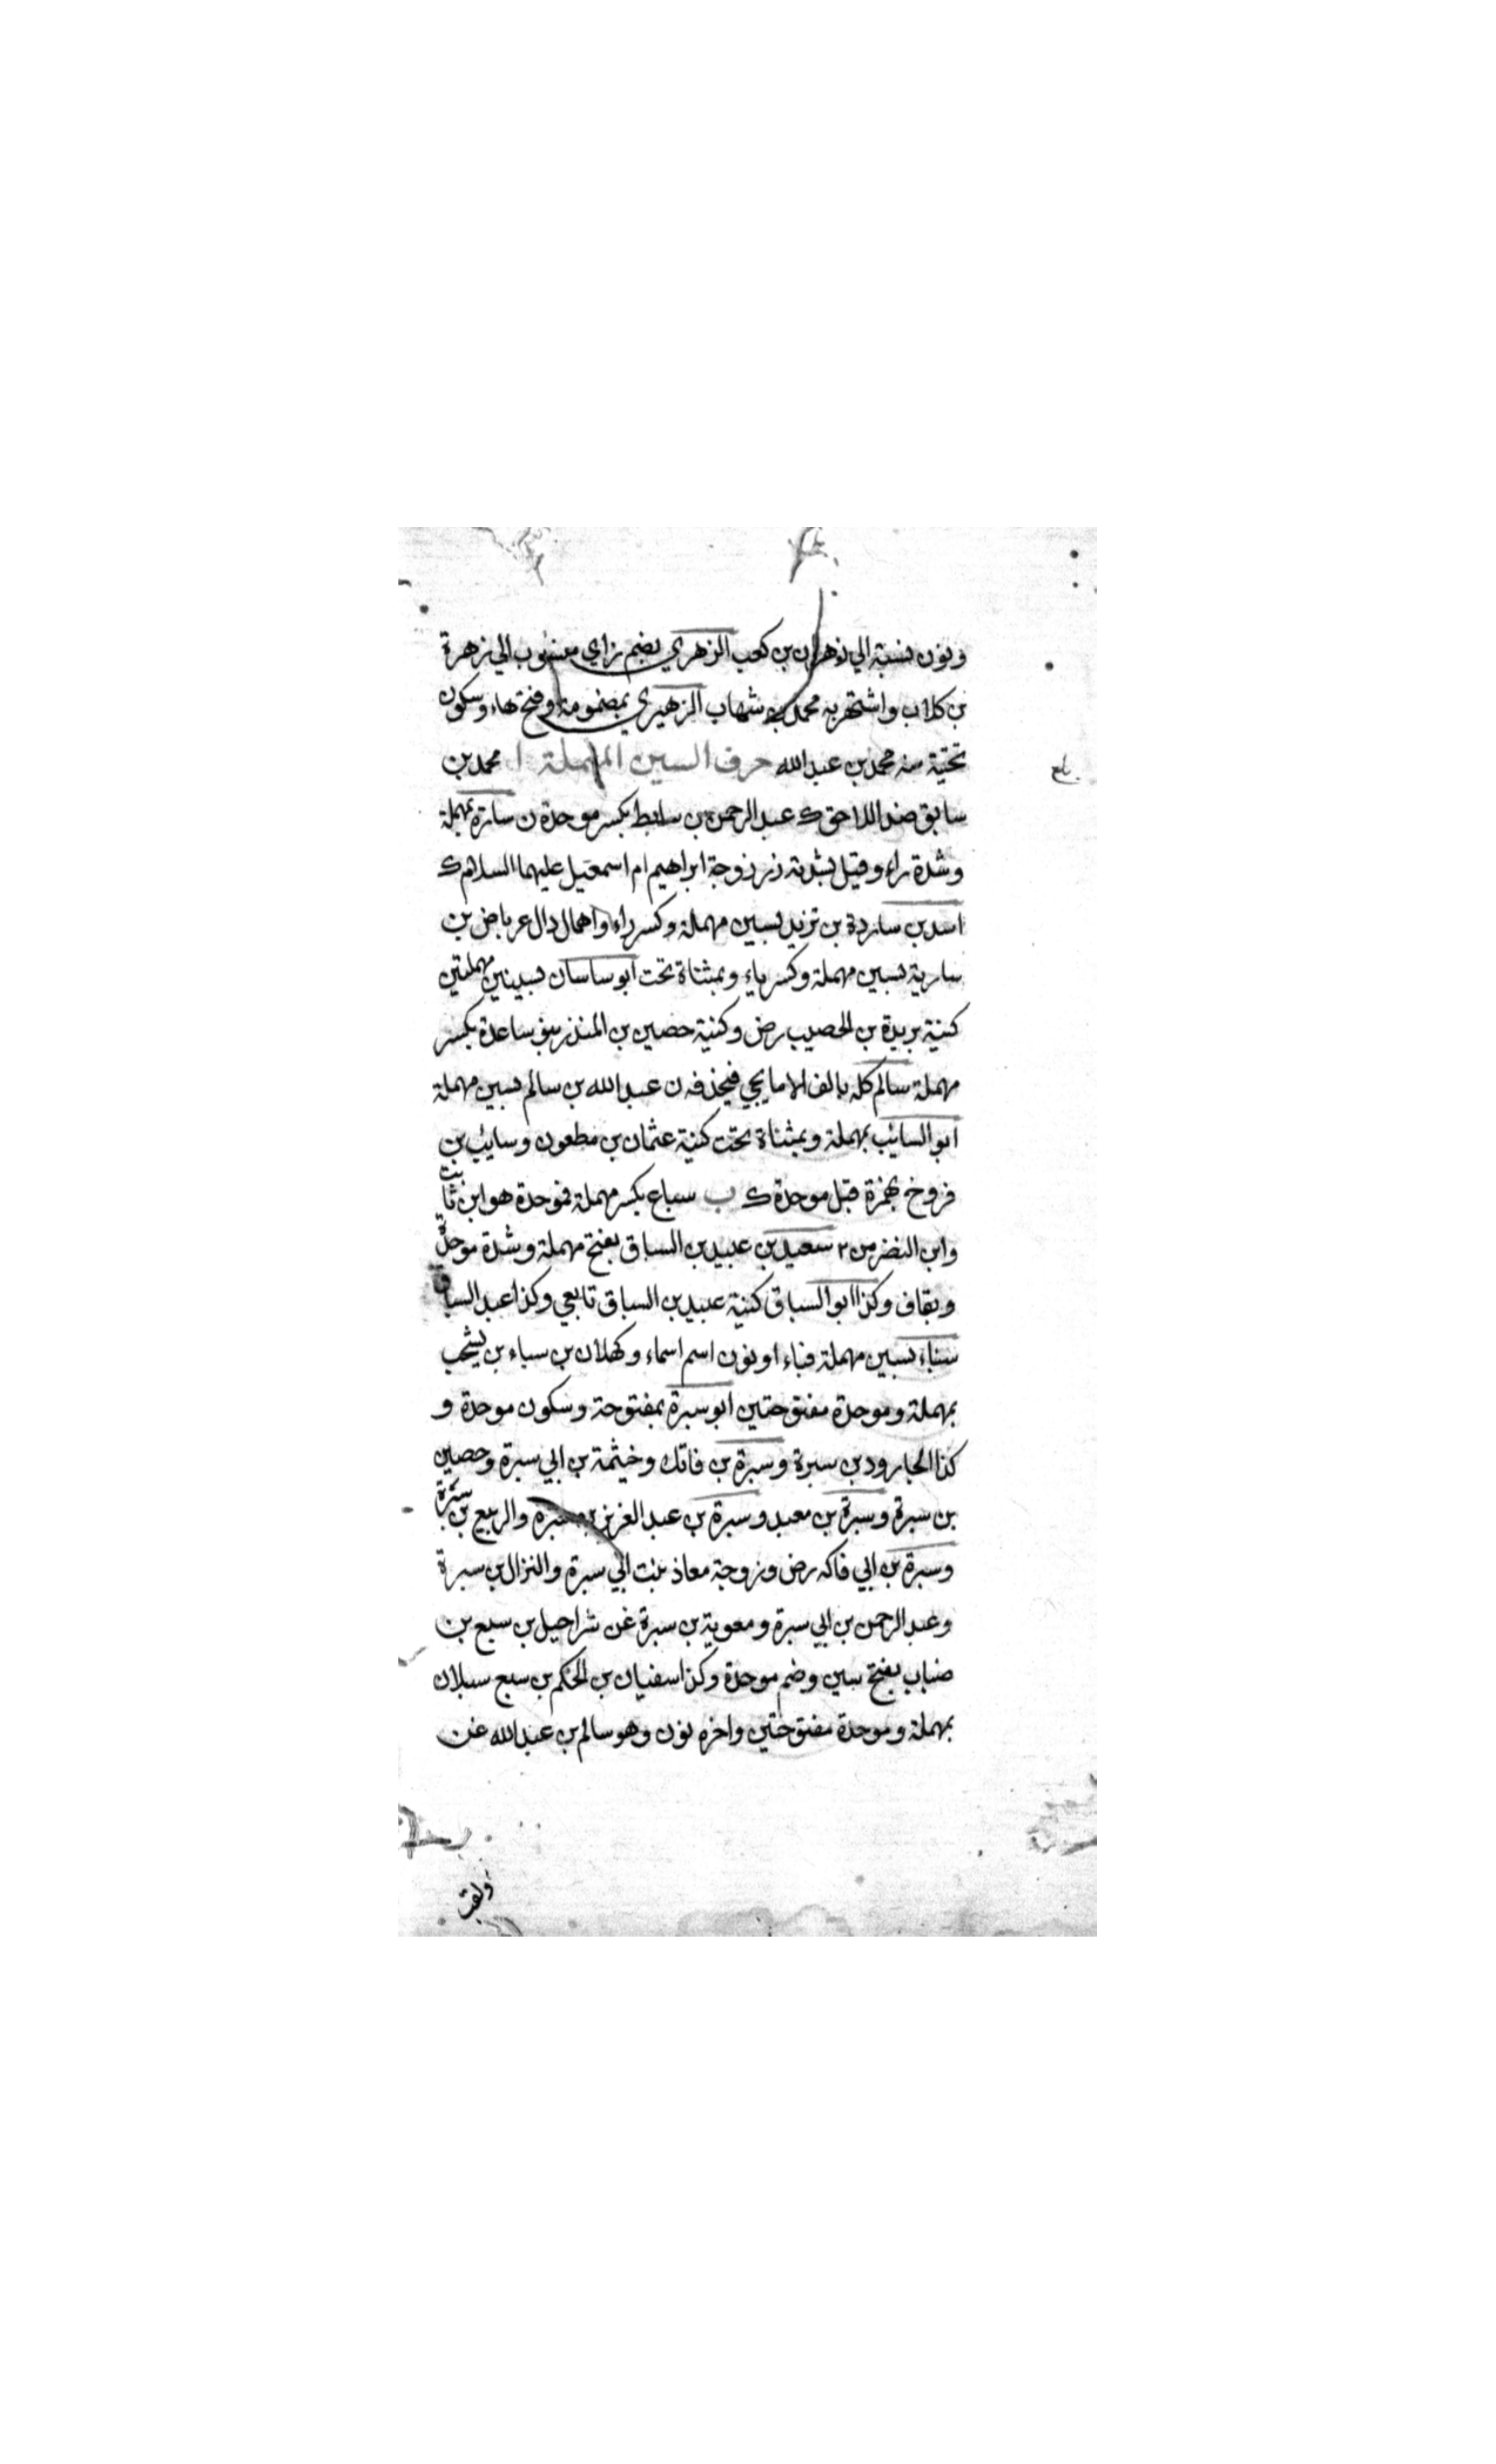 ونون نسبة الي زهران بن كعب الزهري بضم زاي منسوب الي زهرة
بن كلاب واشتهر به محمد بن شهاب الزهيري بمضمومة وفتح هاء وسكون
تحتية منه محمد بن عبد الله حرف السين المهملة ا محمد بن
سابق ضد اللاحق ك عبد الرحمن بن سابط بكسر موحدة ن سارة بمهملة
وشدة راء وقيل بشدته ذر زوجة ابراهيم ام اسمعيل عليهما السلام ك
اسد بن ساردة بن تزيد بسين مهملة وكسر راء واهمال دال عرباض بن
سارية بسين مهملة وكسر ياء وبمثناة تحت ابو ساسان بسينين مهملتين
كنية بريدة بن الحصيب رض وكنية حصين بن المنذر بنو ساعدة بكسر
مهملة سالم كله بالف الا ما يجي فيحذفه ن عبد الله بن سالم بسين مهملة
ابو السائب بمهملة وبمثناة تحت كنية عثمان بن مظعون وسايب بن
فروخ بهمزة قبل موحدة ك ب سباع بكسر مهملة فموحدة هو ابن ثابت
وابن النضر من ٢ سعيد بن عبيد بن السباق بفتح مهملة وشدة موحدة
وبقاف وكذا ابو السباق كنية عبيد بن السباق تابعي وكذا عبد السباق
سناء بسين مهملة فباء او نون اسم اسماء وكهلان بن سباء بن يشجب
بمهملة وموحدة مفتوحتين ابو سبرة بمفتوحة وسكون موحدة و
كذا الجارود بن سبرة وسبرة بن فاتك وخيثمة بن ابي سبرة وحصين
بن سبرة وسبرة بن معبد وسبرة بن عبد العزيز بن سبرة والربيع بن سبرة
وسبرة بن ابي فاكه رض وزوجة معاذ بنت ابي سبرة والنزال بن سبرة
وعبد الرحمن بن ابي سبرة ومعوية بن سبرة غن شراحيل بن سبع بن
ضباب بفتح سين وضم موحدة وكذا سفيان بن الحكم بن سبع سبلان
بمهملة وموحدة مفتوحتين واخره نون وهو سالم بن عبد الله غن
ولقب